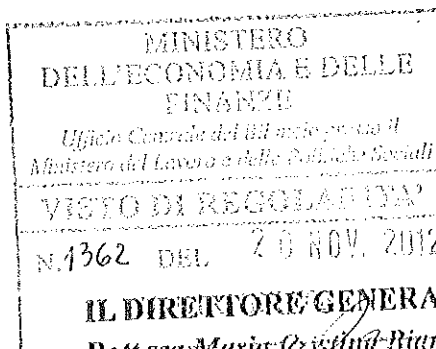 MINISTERO
DELL'ECONOMIA E DELLE
FINANZE
Ufficio Centrale del Bilancio presso il
Ministero del Lavoro e delle Politiche Sociali
VISTO DI REGOLARITA'
N. 1362 DEL 20 NOV. 2012
IL DIRETTORE GENERA
Dott.ssa Maria Cristina Bian